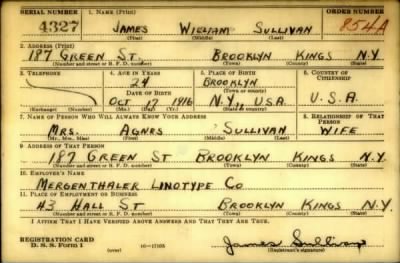 SERIAL NUMBER 1. NAME (Print) ORDER NUMBER
4327 JAMES WILLIAM SULLIVAN 854A
(First) (Middle) (Last)
2. ADDRESS (Print)
187 GREEN ST. BROOKLYN KINGS N.Y.
(Number and street or R. F. D. number) (Town) (County) (State)
3. TELEPHONE 4. AGE IN YEARS 5. PLACE OF BIRTH 6. COUNTRY OF CITIZENSHIP
24 BROOKLYN
DATE OF BIRTH (Town or county)
OCT 17 1916 N.Y., USA U.S.A.
(Exchange) (Number) (Mo.) (Day) (Yr.) (State or country)
7. NAME OF PERSON WHO WILL ALWAYS KNOW YOUR ADDRESS 8. RELATIONSHIP OF THAT PERSON
MRS. AGNES SULLIVAN WIFE
(Mr., Mrs., Miss) (First) (Middle) (Last)
9. ADDRESS OF THAT PERSON
187 GREEN ST BROOKLYN KINGS N.Y.
(Number and street or R. F. D. number) (Town) (County) (State)
10. EMPLOYER'S NAME
MERGENTHALER LINOTYPE CO
11. PLACE OF EMPLOYMENT OR BUSINESS
43 HALL ST BROOKLYN KINGS N.Y.
(Number and street or R. F. D. number) (Town) (County) (State)
I AFFIRM THAT I HAVE VERIFIED ABOVE ANSWERS AND THAT THEY ARE TRUE.
REGISTRATION CARD
D. S. S. Form 1 (over) 16-17105 James Sullivan
(Registrant's signature)